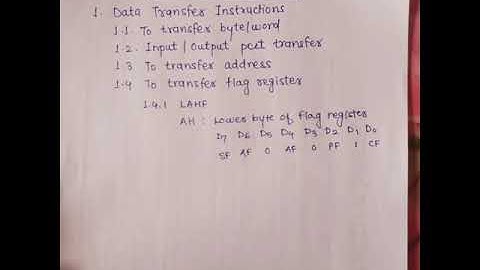 1. Data Transfer Instructions
1.1. To transfer byte/word
1.2. Input/Output port transfer
1.3 To transfer address
1.4 To transfer flag register
1.4.1 LAHF
AH : Lower byte of flag register
D7 D6 D5 D4 D3 D2 D1 D0
SF AF 0 AF 0 PF 1 CF